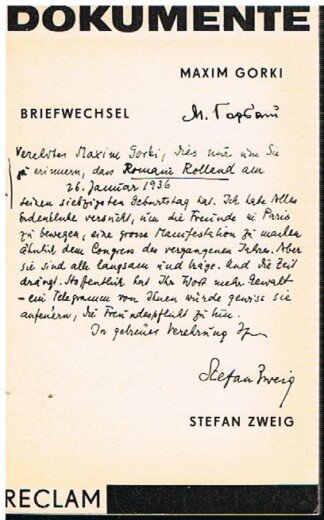 DOKUMENTE
MAXIM GORKI
BRIEFWECHSEL
М. Горький
Verehrter Maxim Gorki, dies nur um Sie
zu erinnern, dass Romain Rolland am
26. Januar 1936
seinen siebzigsten Geburtstag hat. Ich habe Alles
Erdenkliche versucht, um die Freunde in Paris
zu bewegen, eine grosse Manifestation zu machen
ähnlich dem Congress des vergangenen Jahres. Aber
sie sind alle langsam und träge. Und die Zeit
drängt. Hoffentlich hat Ihr Wort mehr Gewalt
– ein Telegramm von Ihnen würde gewiss sie
anfeuern, die Freundespflicht zu tun.
In getreuer Verehrung Ihr
Stefan Zweig
STEFAN ZWEIG
RECLAM